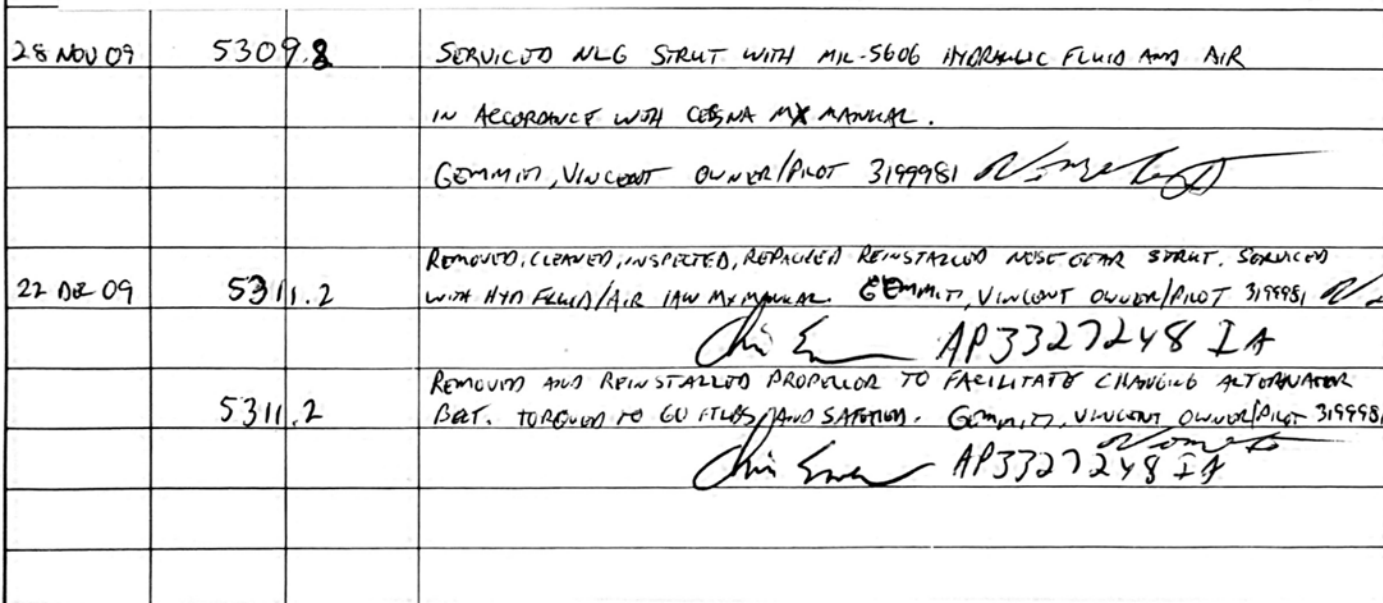 28 NOV 09 5309.8 SERVICED NLG STRUT WITH MIL-5606 HYDRAULIC FLUID AND AIR
IN ACCORDANCE WITH CESSNA MX MANUAL.
GEMMITI, VINCENT OWNER/PILOT 3199981
REMOVED, CLEANED, INSPECTED, REPACKED REINSTALLED NOSE GEAR STRUT. SERVICED
22 DEC 09 5311.2 WITH HYD FLUID/AIR IAW MX MANUAL. GEMMITI, VINCENT OWNER/PILOT 3199981
AP3327248 IA
REMOVED AND REINSTALLED PROPELLOR TO FACILITATE CHANGING ALTERNATOR
5311.2 BELT. TORQUED TO 60 FTLBS AND SAFETIED. GEMMITI, VINCENT OWNER/PILOT 3199981
AP3327248 IA